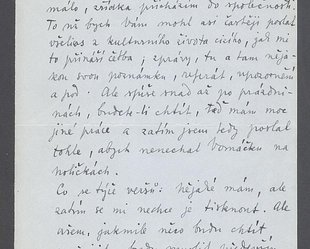 málo, zřídka přicházím do společnosti.
To už bych Vám mohl asi častěji poslat
všelicos z kulturního života cizího, jak mi
to přináší četba, zprávy, tu a tam něja-
kou svou poznámku, referát, upozornění
a pod. Ale spíše snad až po prázdni-
nách, budete-li chtít, teď mám moc
jiné práce a zatím jsem tedy poslal
tohle, abych nenechal Vonáčku na
holičkách.
Co se týče veršů: nějaké mám, ale
zatím se mi nechce je tisknout. Ale
ovšem, jakmile něco budu chtít